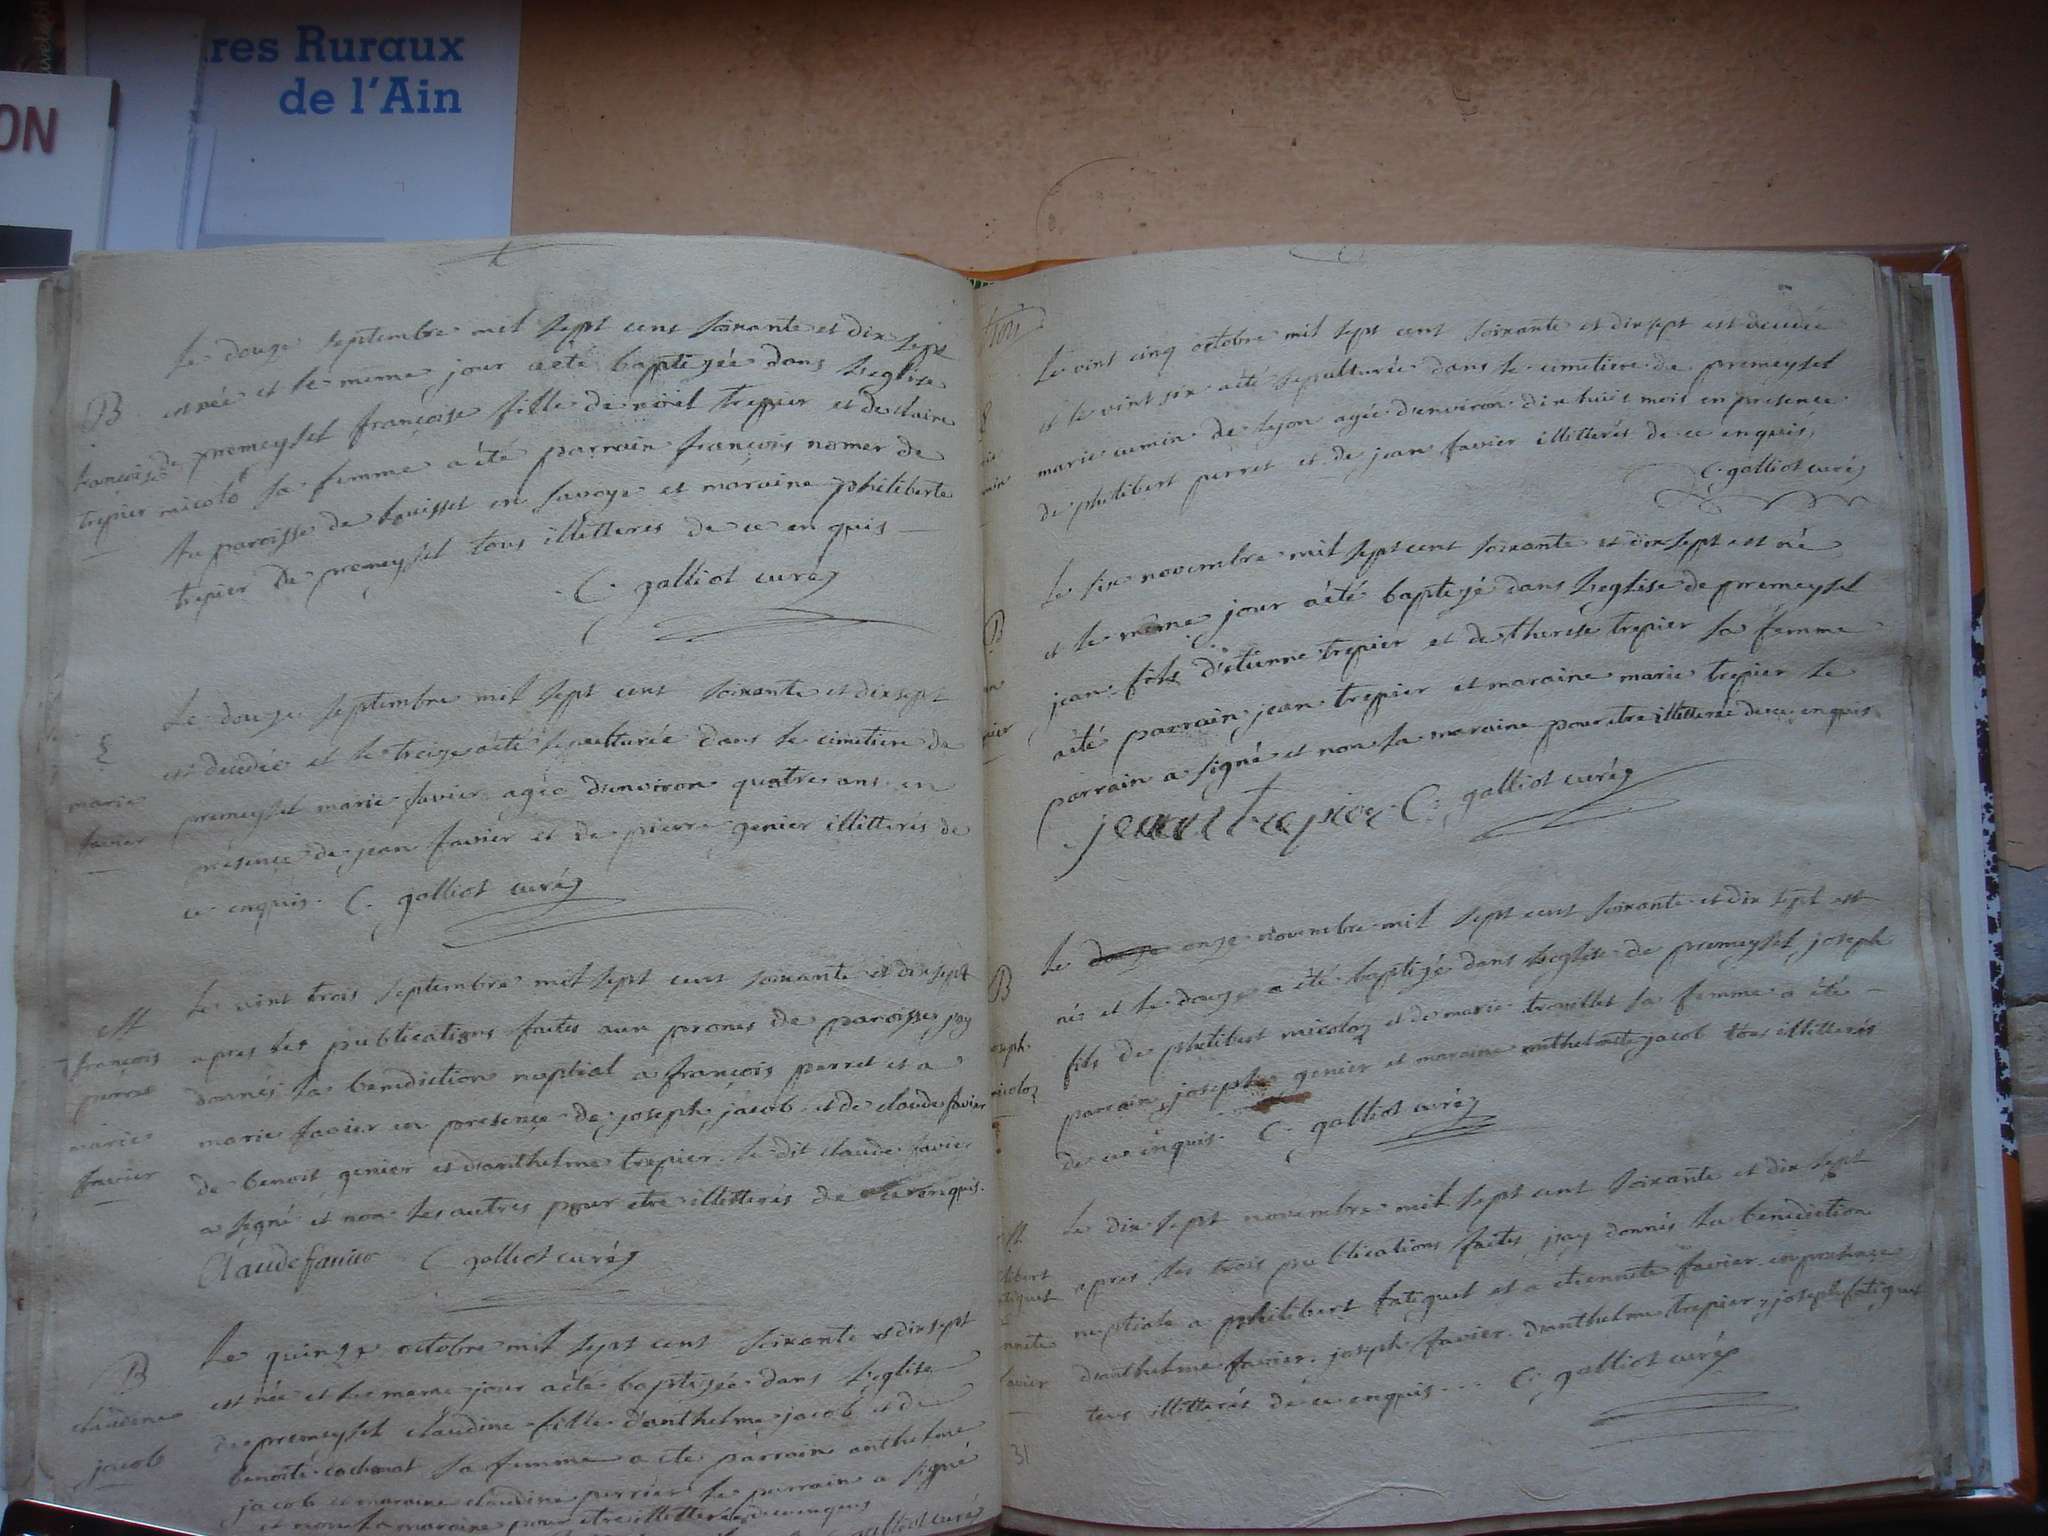 res Ruraux
de l'Ain
ON
Le douze septembre mil sept cens soixante et dix sept
B
est née et le même jour a été baptizée dans l'eglise
françoise
trepier
de premeyzel françoise fille de noël trepier et de claire
micolo sa femme a été parrain françois nomer de
la paroisse de en savoye et maraine philiberte
trepier de premeyzel tous illitteres de ce enquis
C. galliot curé
Le douze septembre mil sept cent soixante et dix sept
S
marie
favier
est decedée et le treize a été sepulturée dans le cimetiere de
premeyzel marie favier agée d'environ quatre ans en
presence de jean favier et de pierre genier illitterés de
ce enquis. C. galliot curé
Le vint trois septembre mil sept cent soixante et dix sept
M
françois
perret
marie
favier
apres les publications faites aux prones de paroisse j'ay
donnés la benediction nuptial a françois perret et a
marie favier en presence de joseph jacob et de claude favier
de benoit genier et d'anthelme trepier. le dit claude favier
a signé et non les autres pour etre illitterés de ce enquis.
Claude favier C galliot curé
Le quinze octobre mil sept cent soixante et dix sept
B
claudine
jacob
est née et le meme jour a été baptisée dans l'eglise
de premeyzel claudine fille d'anthelme jacob et de
benoite sa femme a été parrain anthelme
jacob et maraine claudine perrier le parrain a signé
et non la maraine pour etre illitterée de ce enquis
galliot curé
trois
Le vint cinq octobre mil sept cent soixante et dix sept est decedée
et le vint six a été sepulturée dans le cimetiere de premeyzel
marie cumin de lyon agée d'environ dix huit mois en presence
de philibert perret et de jean favier illitterés de ce enquis,
C. galliot curé
Le six novembre mil sept cent soixante et dix sept est né
B
et le même jour a été baptizé dans l'eglise de premeyzel
jean fils d'etienne trepier et de therese trepier sa femme
a été parrain jean trepier et maraine marie trepier le
parrain a signé et non la maraine pour etre illitterée de ce enquis
jean trepier C. galliot curé
Le douze onze novembre mil sept cent soixante et dix sept est
B
né et le douze a été baptizé dans l'eglise de premeyzel joseph
fils de philibert micoloz et de marie trouillet sa femme a été
parrain joseph genier et maraine anthelmette jacob tous illitterés
de ce enquis. C. galliot curé
Le dix sept novembre mil sept cent soixante et dix sept
apres les trois publications faites j'ay donnés la benediction
nuptiale a philibert fatiguet et a etiennete favier en presence
d'anthelme favier, joseph favier d'anthelme trepier, joseph fatiguet
tous illitterés de ce enquis... C. galliot curé
31